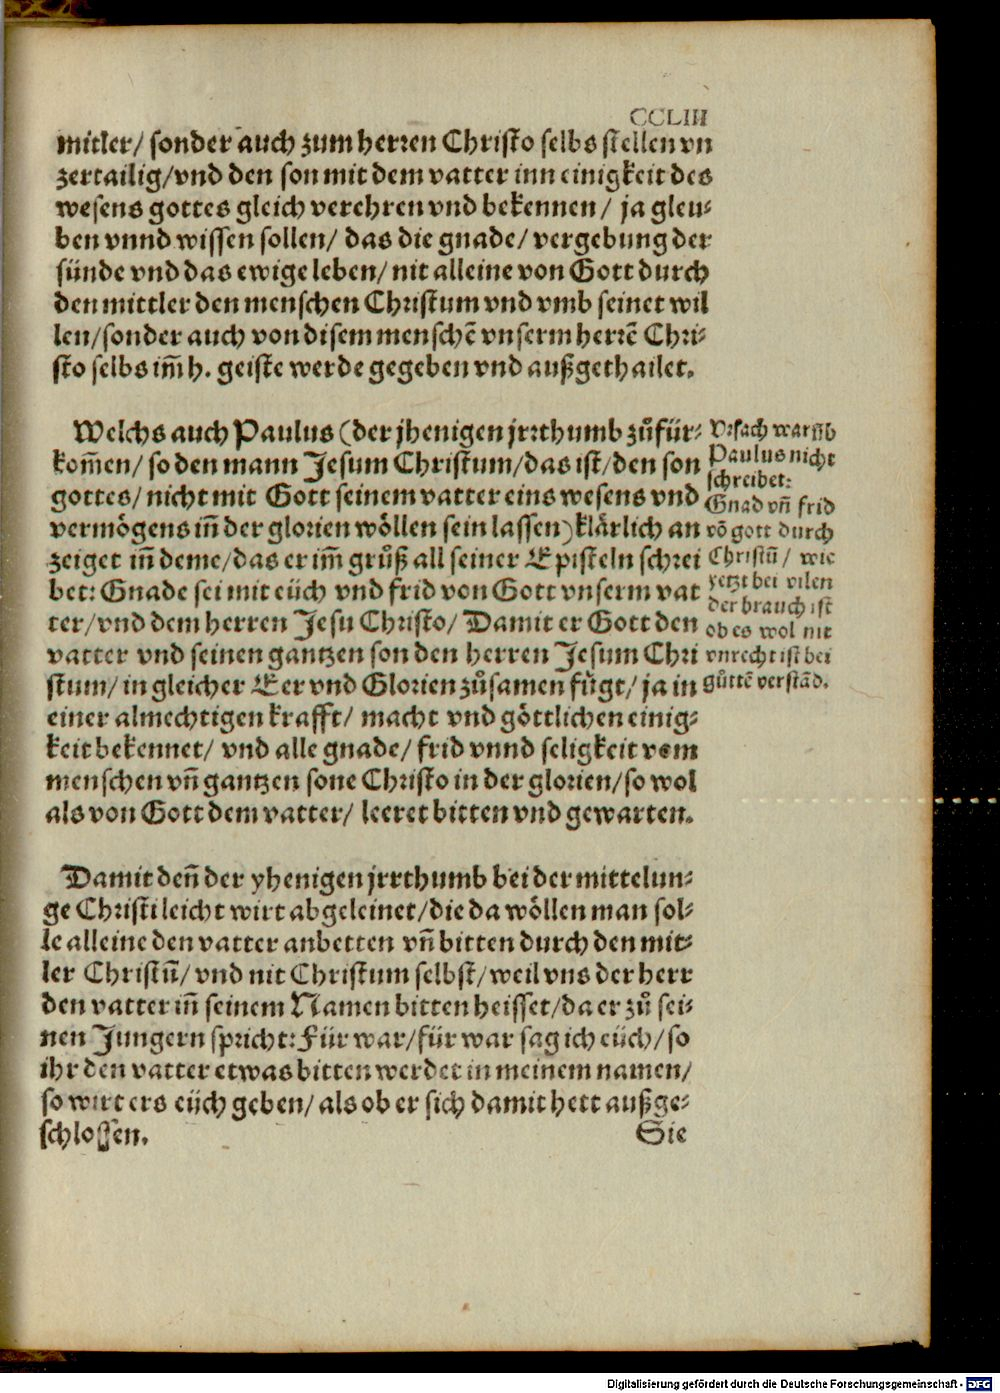 CCLIII
mitler/ sonder auch zum herren Christo selbs stellen vn
zertailig/vnd den son mit dem vatter inn einigkeit des
wesens gottes gleich verehren vnd bekennen/ ja gleu⸗
ben vnnd wissen sollen/ das die gnade/ vergebung der
sünde vnd das ewige leben/ nit alleine von Gott durch
den mittler den menschen Christum vnd vmb seinet wil
len/sonder auch von disem menschē vnserm herrē Chri⸗
sto selbs im̄ h. geiste werde gegeben vnd außgethailet.
Welchs auch Paulus (der jhenigen jrrthumb zůfür⸗
kom̄en/ so den mann Jesum Christum/das ist/den son
gottes/ nicht mit Gott seinem vatter eins wesens vnd
vermögens in̄ der glorien wöllen sein lassen) klärlich an
zeiget in̄ deme/das er im̄ grůß all seiner Episteln schrei
bet: Gnade sei mit eüch vnd frid von Gott vnserm vat
ter/vnd dem herren Jesu Christo/ Damit er Gott den
vatter vnd seinen gantzen son den herren Jesum Chri
stum/ in gleicher Eer vnd Glorien zůsamen fůgt/ ja in
einer almechtigen krafft/ macht vnd göttlichen einig⸗
keit bekennet/ vnd alle gnade/ frid vnnd seligkeit vom
menschen vn̄ gantzen sone Christo in der glorien/so wol
als von Gott dem vatter/ leeret bitten vnd gewarten.
Vrsach warūb
Paulus nicht
schreibet:
Gnad vn̄ frid
vō gott durch
Christū/ wie
yetzt bei vilen
der brauch ist
ob es wol nit
vnrecht ist bei
gůttē verstād.
Damit den̄ der yhenigen jrrthumb bei der mittelun⸗
ge Christi leicht wirt abgeleinet/die da wöllen man sol⸗
le alleine den vatter anbetten vn̄ bitten durch den mit⸗
ler Christū/ vnd nit Christum selbst/weil vns der herr
den vatter in̄ seinem Namen bitten heisset/da er zů sei⸗
nen Jungern spricht: Für war/für war sag ich eüch/so
ihr den vatter etwas bitten werdet in meinem namen/
so wirt ers eüch geben/ als ob er sich damit hett außge⸗
schlossen.
Sie
Digitalisierung gefördert durch die Deutsche Forschungsgemeinschaft - DFG